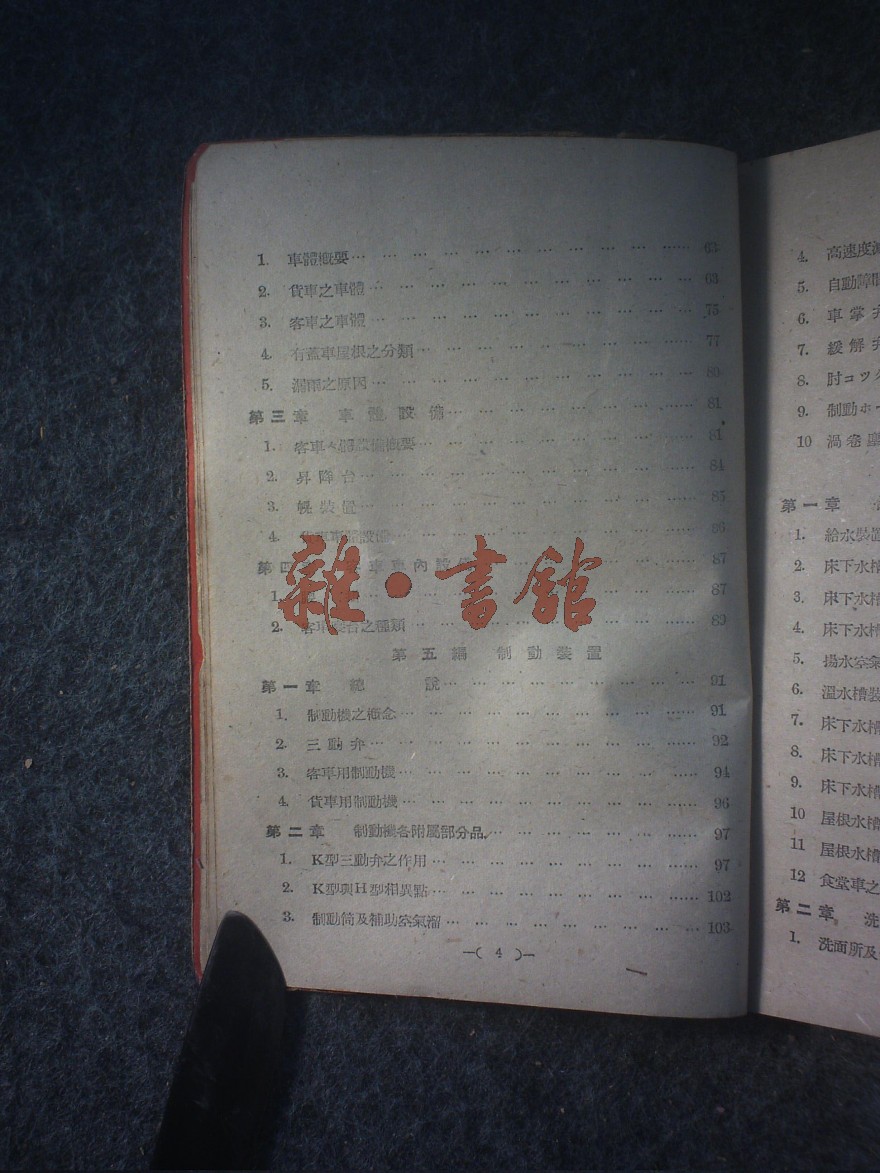 1. 車體概要 63
2. 貨車之車體 63
3. 客車之車體 75
4. 有蓋車屋根之分類 77
5. 漏雨之原因 80
第三章 車體設備 81
1. 客車 體設備概要 81
2. 昇降台 84
3. 幌裝置 85
4. 車體設備 86
第四 車內設 87
1. 87
2. 客車 台之種類 89
第五編 制動裝置
第一章 總說 91
1. 制動機之概念 91
2. 三動弁 92
3. 客車用制動機 94
4. 貨車用制動機 96
第二章 制動機各附屬部分品 97
1. K型三動弁之作用 97
2. K型與H型相異點 102
3. 制動筒及補助空氣溜 103
—( 4 )—
雜·書館
4. 高速度
5. 自動障
6. 車掌弁
7. 緩解弁
8. 肘コツク
9. 制動ホー
10 渦卷
第一章
1. 給水裝置
2. 床下水槽
3. 床下水槽
4. 床下水槽
5. 揚水空氣
6. 溫水槽裝
7. 床下水槽
8. 床下水槽
9. 床下水槽
10 屋根水槽
11 屋根水槽
12 食堂車之
第二章 洗
1. 洗面所及